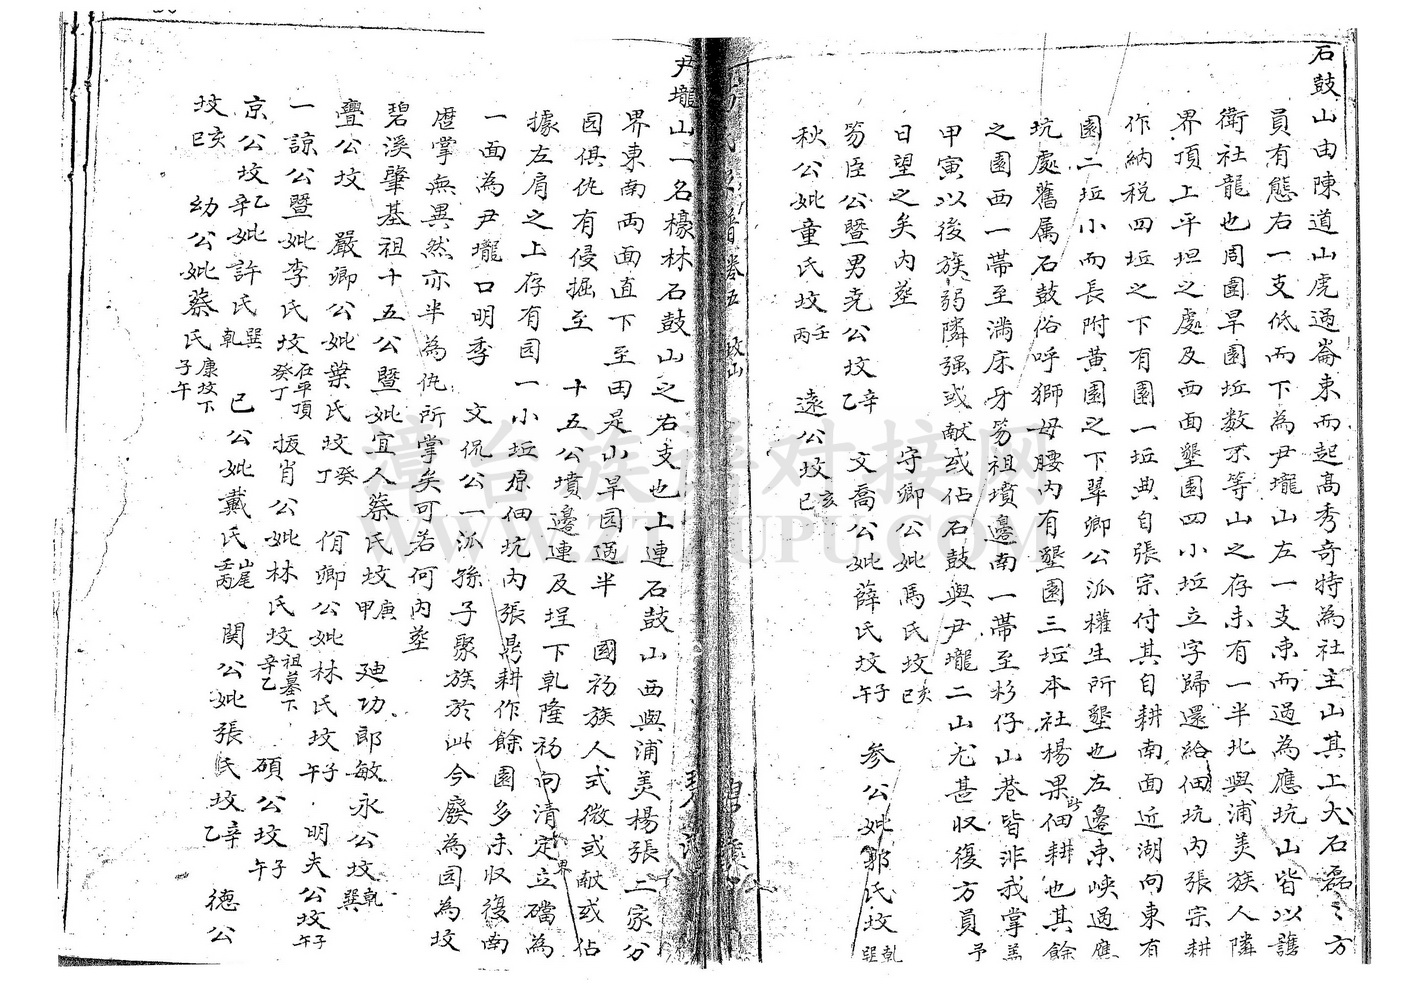 石鼓山由陳道山虎過崙東而起高秀奇特為社主山其上大石磊〻方
員有態右一支低而下為尹壠山左一支東而過為應坑山皆以護
衛社龍也周圍旱園坵数不等山之存未有一半北與浦美族人隣
界頂上平坦之處及西面墾園四小坵立字歸還給佃坑內張宗耕
作納税四坵之下有園一坵典自張宗付其自耕南面近湖向東有
園二坵小而長附黄園之下翠卿公派權生所墾也左邊東峽過應
坑處舊属石鼓俗呼獅母腰内有墾園三坵本社楊果佃耕也其餘
之園西一帶至滿床牙笏祖墳邊南一帶至杉仔山巷皆非我掌蓋
甲寅以後族弱隣强或献或佔石鼓與尹壠二山尤甚収復方員予
日望之矣内塟
笏臣公暨男堯公坟辛乙 文喬公妣薛氏坟子午 参公妣郭氏坟乾巽
守卿公妣馬氏坟亥巳
秋公妣童氏坟壬丙 遠公坟亥巳
卷五 坟山
尹壠山一名檺林石鼓山之右支也上連石鼓山西與浦美楊張二家分
界東南両面直下至田是山旱园過半 國初族人式微或献或佔
园俱仇有侵掘至 十五公墳邊連及埕下乾隆初向清定立礑為界
據左肩之上存有园一小坵原佃坑內張鼎耕作餘園多未収復南
一面為尹壠口明季 文侃公一派孫子聚族於此今廢為园為坟
歴掌無異然亦半為仇所掌矣可若何內塟
碧溪肇基祖十五公暨妣宜人蔡氏坟庚甲 廸功郎敏永公坟乾巽
亹公坟 嚴卿公妣葉氏坟癸丁 俏卿公妣林氏坟子午 明夫公坟子午
一諒公暨妣李氏坟在平頂癸丁 振肖公妣林氏坟祖墓下辛乙 碩公坟子午
京公坟辛乙妣許氏巽乾 已公妣戴氏山尾壬丙 閔公妣張氏坟辛乙 德公
坟巳亥 幼公妣蔡氏康坟下子午
漳台族谱对接网
WWW.ZTZUPU.COM